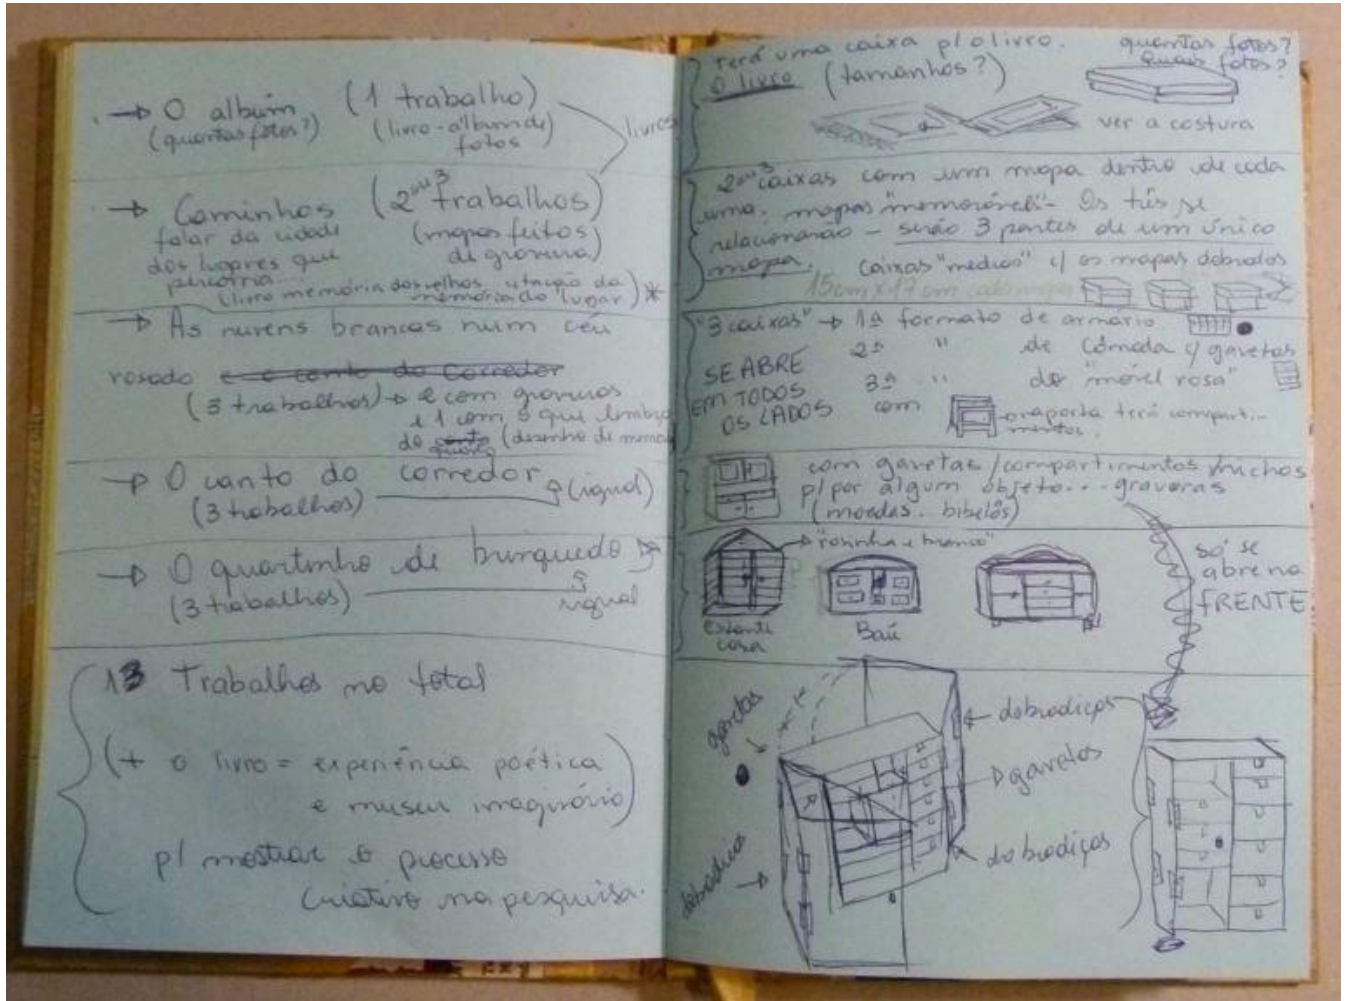 → O album (1 trabalho)
(quantas fotos?) (livro-álbum de
fotos) livros
→ Caminhos (2 ou 3 trabalhos)
falar da cidade (mapas feitos
dos lugares que de gravura)
percorria
(livro memória dos velhos citação da
memória do "lugar") *
→ As nuvens brancas num céu
rosado e o canto do corredor
(3 trabalhos) → 2 com gravuras
e 1 com o que lembro
do canto quarto (desenho de memória
→ O canto do corredor (igual)
(3 trabalhos)
→ O quartinho de brinquedo
(3 trabalhos) igual
13 Trabalhos no total
(+ o livro = experiência poética
e museu imaginário)
p/ mostrar o processo
criativo na pesquisa.
Terá uma caixa p/ o livro. quantas fotos?
O livro (tamanhos?) Quais fotos?
ver a costura
2 ou 3 caixas com um mapa dentro de cada
uma. mapas "memoráveis" - Os três se
relacionarão - serão 3 partes de um único
mapa. Caixas "médias" c/ os mapas dobrados
15cm x 17cm cada mapa
"3 caixas" → 1ª formato de armário
SE ABRE 2ª " de cômoda c/ gavetas
EM TODOS 3ª " do "móvel rosa"
OS LADOS com → a porta terá comparti-
mentos.
com gavetas/compartimentos/nichos
p/ por algum objeto... gravuras
(moedas.. bibelôs)
→ "rosinha e branco"
só se
abre na
FRENTE.
Estante Baú
casa
gavetas
dobradiças
gavetas
dobradiças
dobradiças